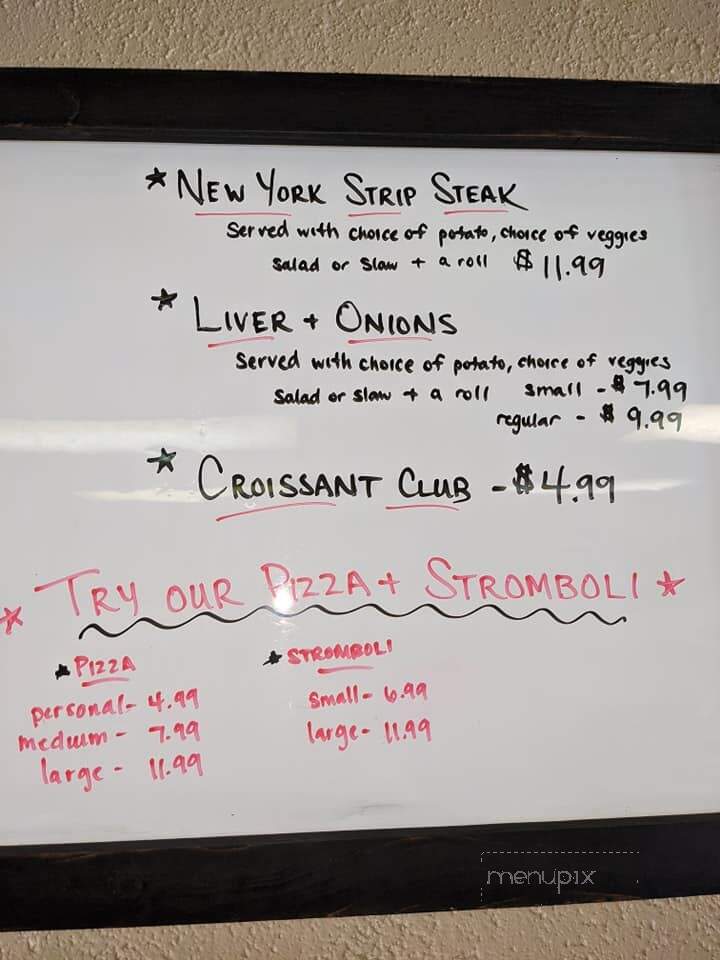 * NEW YORK STRIP STEAK
Served with choice of potato, choice of veggies
salad or slaw + a roll $11.99
* LIVER + ONIONS
Served with choice of potato, choice of veggies
salad or slaw + a roll small - $7.99
regular - $9.99
* CROISSANT CLUB - $4.99
* TRY OUR PIZZA + STROMBOLI *
* PIZZA
personal - 4.99
medium - 7.99
large - 11.99
* STROMBOLI
small - 6.99
large - 11.99
menupix